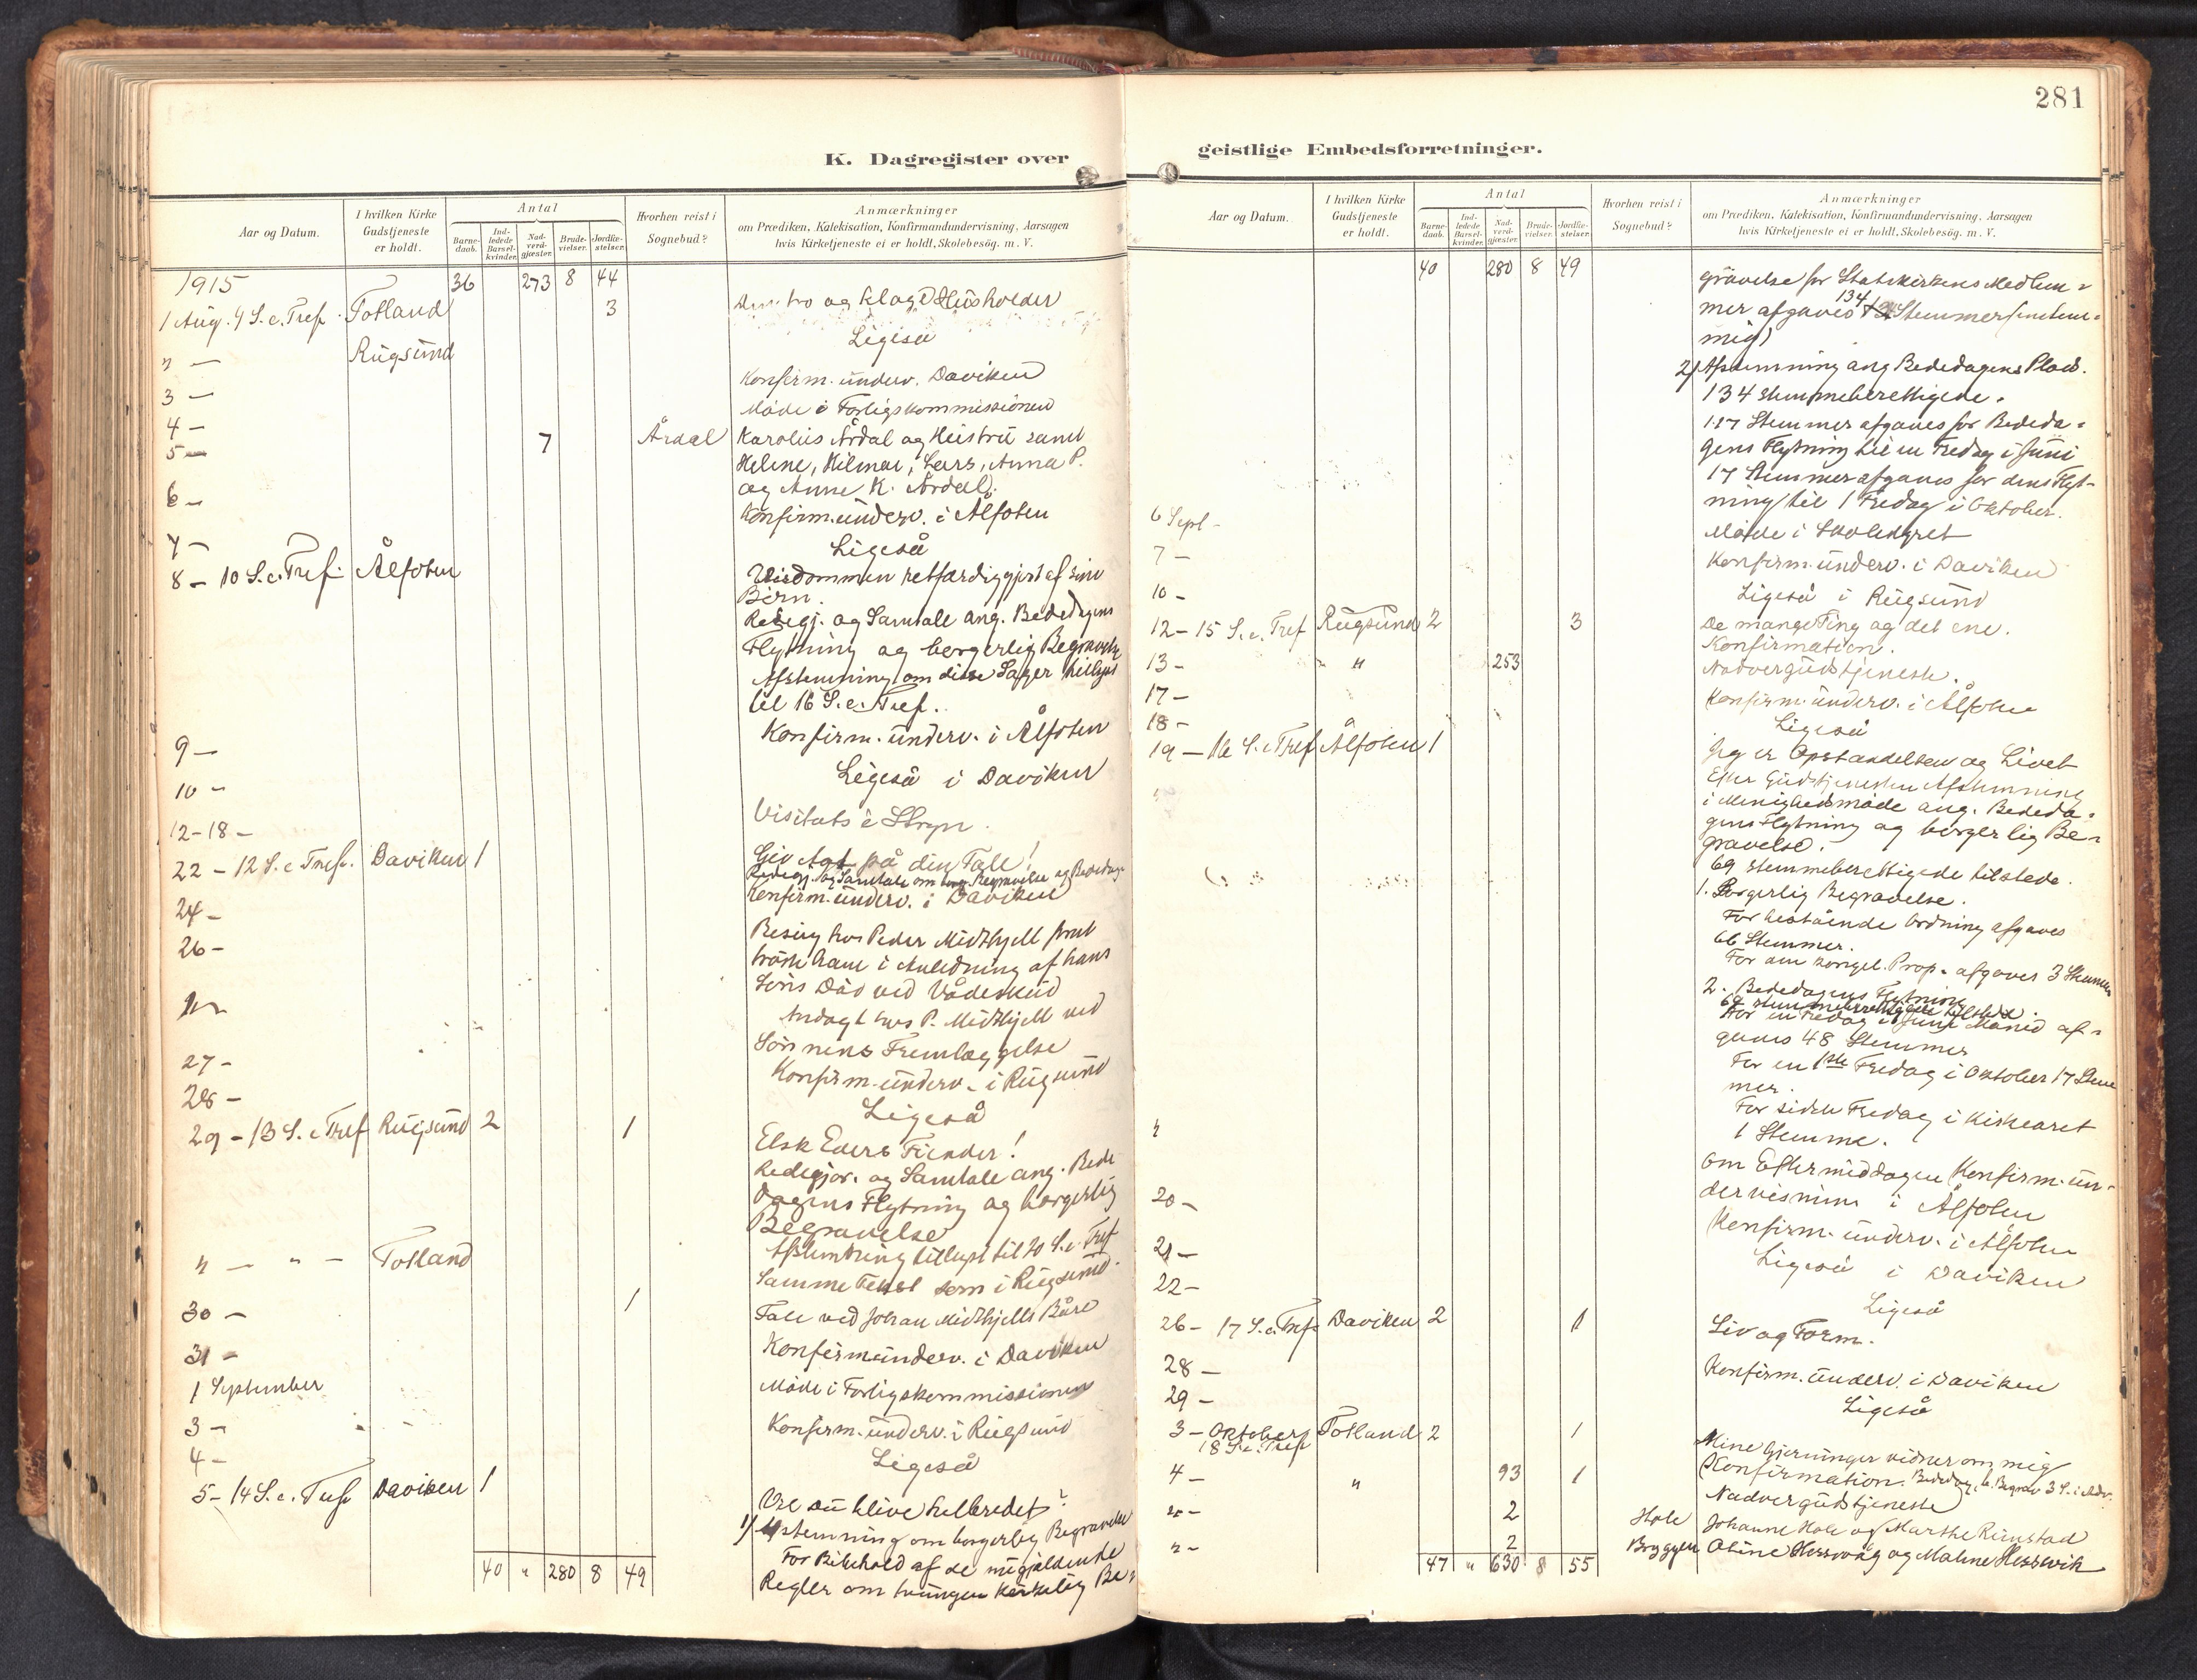 281
K. Dagregister over
geistlige Embedsforretninger.
Aar og Datum.
I hvilken Kirke
Gudstjeneste
er holdt.
Antal
Barne-
daab.
Ind-
ledede
Barsel-
kvinder.
Nad-
verd-
gjæster.
Brude-
vielser.
Jordfæ-
stelser.
Hvorhen reist i
Sognebud?
Anmærkninger
om Prædiken, Katekisation, Konfirmandundervisning, Aarsagen
hvis Kirketjeneste ei er holdt, Skolebesög. m. V.
1915 36 273 8 44
1 Aug. 9 S. e. Tref. Totland 3 Den tro og kloge Husholder
" — Rugsund Ligeså
3 — Konfirm. underv. Daviken
4 — Møde i Forligskommissionen
5 — 7 Årdal Karolus Årdal og Hustru samt
Heline, Hilmar, Lars, Anna P.
og Anne K. Årdal.
6 — Konfirm. underv. i Ålfoten
7 — Ligeså
8 — 10 S. e. Tref. Ålfoten Visdommen retfærdiggjort af sine
Børn.
Redegj. og Samtale ang. Bededagens
Flytning og borgerlig Begravelse
Afstemning om disse Sager tillyst
til 16 S. e. Tref.
9 — Konfirm. underv. i Ålfoten
10 — Ligeså i Daviken
12-18 — Visitats i Stryn.
22 — 12 S. e Tref. Daviken 1 Giv Agt på din Tale!
Redegj. og Samtale om borg. Begravelse og Bededag
24 — Konfirm. underv. i Daviken
26 — Besøg hos Peder Midthjell for at
trøste ham i Anledning af hans
Søns Død ved Vådeskud
Andagt hos P. Midthjell ved
Sønnens Fremlæggelse
27 — Konfirm. underv. i Rugsund
28 — Ligeså
29 — 13 S. e Tref Rugsund 2 1 Elsk Eders Fiender!
Redegjør. og Samtale ang. Bede
dagens Flytning og borgerlig
Begravelse
Afstemning tillyst til 20 S. e. Tref
" — " — Totland Samme Tekst som i Rugsund.
30 — 1 Tale ved Johan Midthjells Båre
31 — Konfirm. underv. i Daviken
1 September Møde i Forligskommissionen
3 — Konfirm. underv. i Rugsund
4 — Ligeså
5 — 14 S. e. Tref Daviken 1 Vil du blive helbredet?
1) Afstemning om borgerlig Begravelse
For Bibehold af de nugjeldende
Regler om tvungen kirkelig Be-
40 " 280 8 49
Aar og Datum.
I hvilken Kirke
Gudstjeneste
er holdt.
Antal
Barne-
daab.
Ind-
ledede
Barsel-
kvinder.
Nad-
verd-
gjæster.
Brude-
vielser.
Jordfæ-
stelser.
Hvorhen reist i
Sognebud?
Anmærkninger
om Prædiken, Katekisation, Konfirmandundervisning, Aarsagen
hvis Kirketjeneste ei er holdt, Skolebesög. m. V.
40 280 8 49 gravelse for Statskirkens Medlem-
mer afgaves 134 Stemmer (enstem-
mig)
2) Afstemning ang Bededagens Plads.
134 stemmeberettigede.
117 Stemmer afgaves for Bededa-
gens Flytning til en Fredag i Juni
17 Stemmer afgaves for dens Flyt-
ning til 1 Fredag i Oktober.
6 Sept — Møde i Skolestyret
7 — Konfirm. underv. i Daviken
10 — Ligeså i Rugsund
12 — 15 S. e. Tref Rugsund 2 3 De mange Ting og det ene.
Konfirmation.
13 — " 253 Nadvergudstjeneste.
17 — Konfirm. underv. i Ålfoten
18 — Ligeså
19 — 16 S. e Tref Ålfoten 1 Jeg er Opstandelsen og Livet
Efter Gudstjenesten Afstemning
i Menighedsmøde ang. Bededa-
gens Flytning og borgerlig Be-
gravelse.
69 stemmeberettigede tilstede.
1. Borgerlig Begravelse.
For bestående Ordning afgaves
66 Stemmer.
For den kongel. Prop. afgaves 3 Stemmer
2. Bededagens Flytning
69 stemmeberettigede tilstede.
For en Fredag i Juni Måned af-
gaves 48 Stemmer
For en 1ste Fredag i Oktober 17 Stem
mer.
For sidste Fredag i Kirkeåret
1 Stemme.
" Om Eftermiddagen Konfirm. un-
dervisning i Ålfoten
20 — Konfirm. underv. i Ålfoten
21 — Ligeså i Daviken
22 — Ligeså
26 — 17 S. e. Tref Daviken 2 1 Liv og Form.
28 — Konfirm. underv. i Daviken
29 — Ligeså
3 — Oktober Totland 2 1 Mine Gjerninger vidner om mig
18 S. e. Tref
(Konfirmation. Bededag, b. Begrav 3 S. i Adv.
4 — " 93 1 Nadvergudstjeneste
" — 2 Hole Johanne Hole og Marthe Rimstad
" — 2 Bryggen Oline Hessvåg og Maline Hessvik
47 " 630 8 55